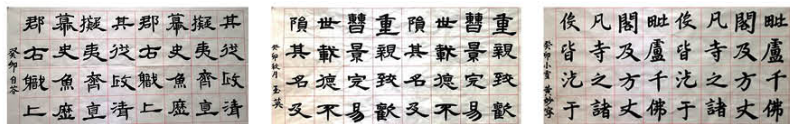 其從政清
擬夷齊直
慕史魚歷
郡右職上
其從政清
擬夷齊直
慕史魚歷
郡右職上
癸卯
重親致歡
曹景完易
世載德不
隕其名及
重親致歡
曹景完易
世載德不
隕其名及
癸卯秋月 玉英
毗盧千佛
閣及方丈
凡寺之諸
俟皆汔于
毗盧千佛
閣及方丈
凡寺之諸
俟皆汔于
癸卯小雪 黃妙容